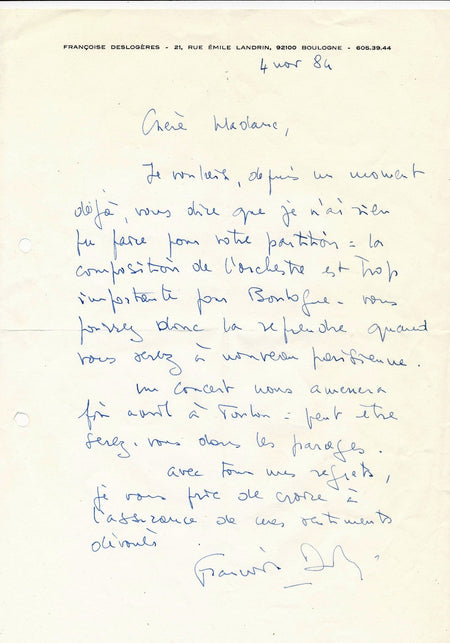 FRANÇOISE DESLOGÈRES - 21, RUE ÉMILE LANDRIN, 92100 BOULOGNE - 605.39.44
4 nov 84
Chère Madame,
Je voulais, depuis un moment
déjà, vous dire que je n'ai rien
pu faire pour votre partition : la
composition de l'orchestre est trop
importante pour Boulogne. vous
pouvez donc la reprendre quand
vous serez à nouveau parisienne.
un concert nous amènera
fin avril à Toulon : peut être
serez-vous dans les parages.
avec tous mes regrets,
je vous prie de croire à
l'assurance de mes sentiments
dévoués
Françoise